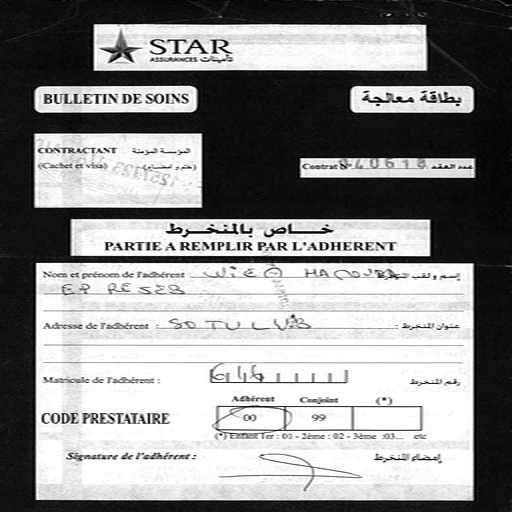 STAR
ASSURANCES تأمينات
BULLETIN DE SOINS بطاقة معالجة
CONTRACTANT المؤسسة المؤمنة
(Cachet et visa) (ختم و إمضاء)
Contrat N° 040618 عدد العقد
خــاص بالمنخــرط
PARTIE A REMPLIR PAR L'ADHERENT
Nom et prénom de l'adhérent إسم و لقب المنخرط
EP
Adresse de l'adhérent : SOTULUB عنوان المنخرط :
Matricule de l'adhérent : 646 رقم المنخرط
Adhérent Conjoint (*)
CODE PRESTATAIRE 00 99
(*) Enfant 1er : 01 - 2ème : 02 - 3ème :03... etc
Signature de l'adhérent : إمضاء المنخرط